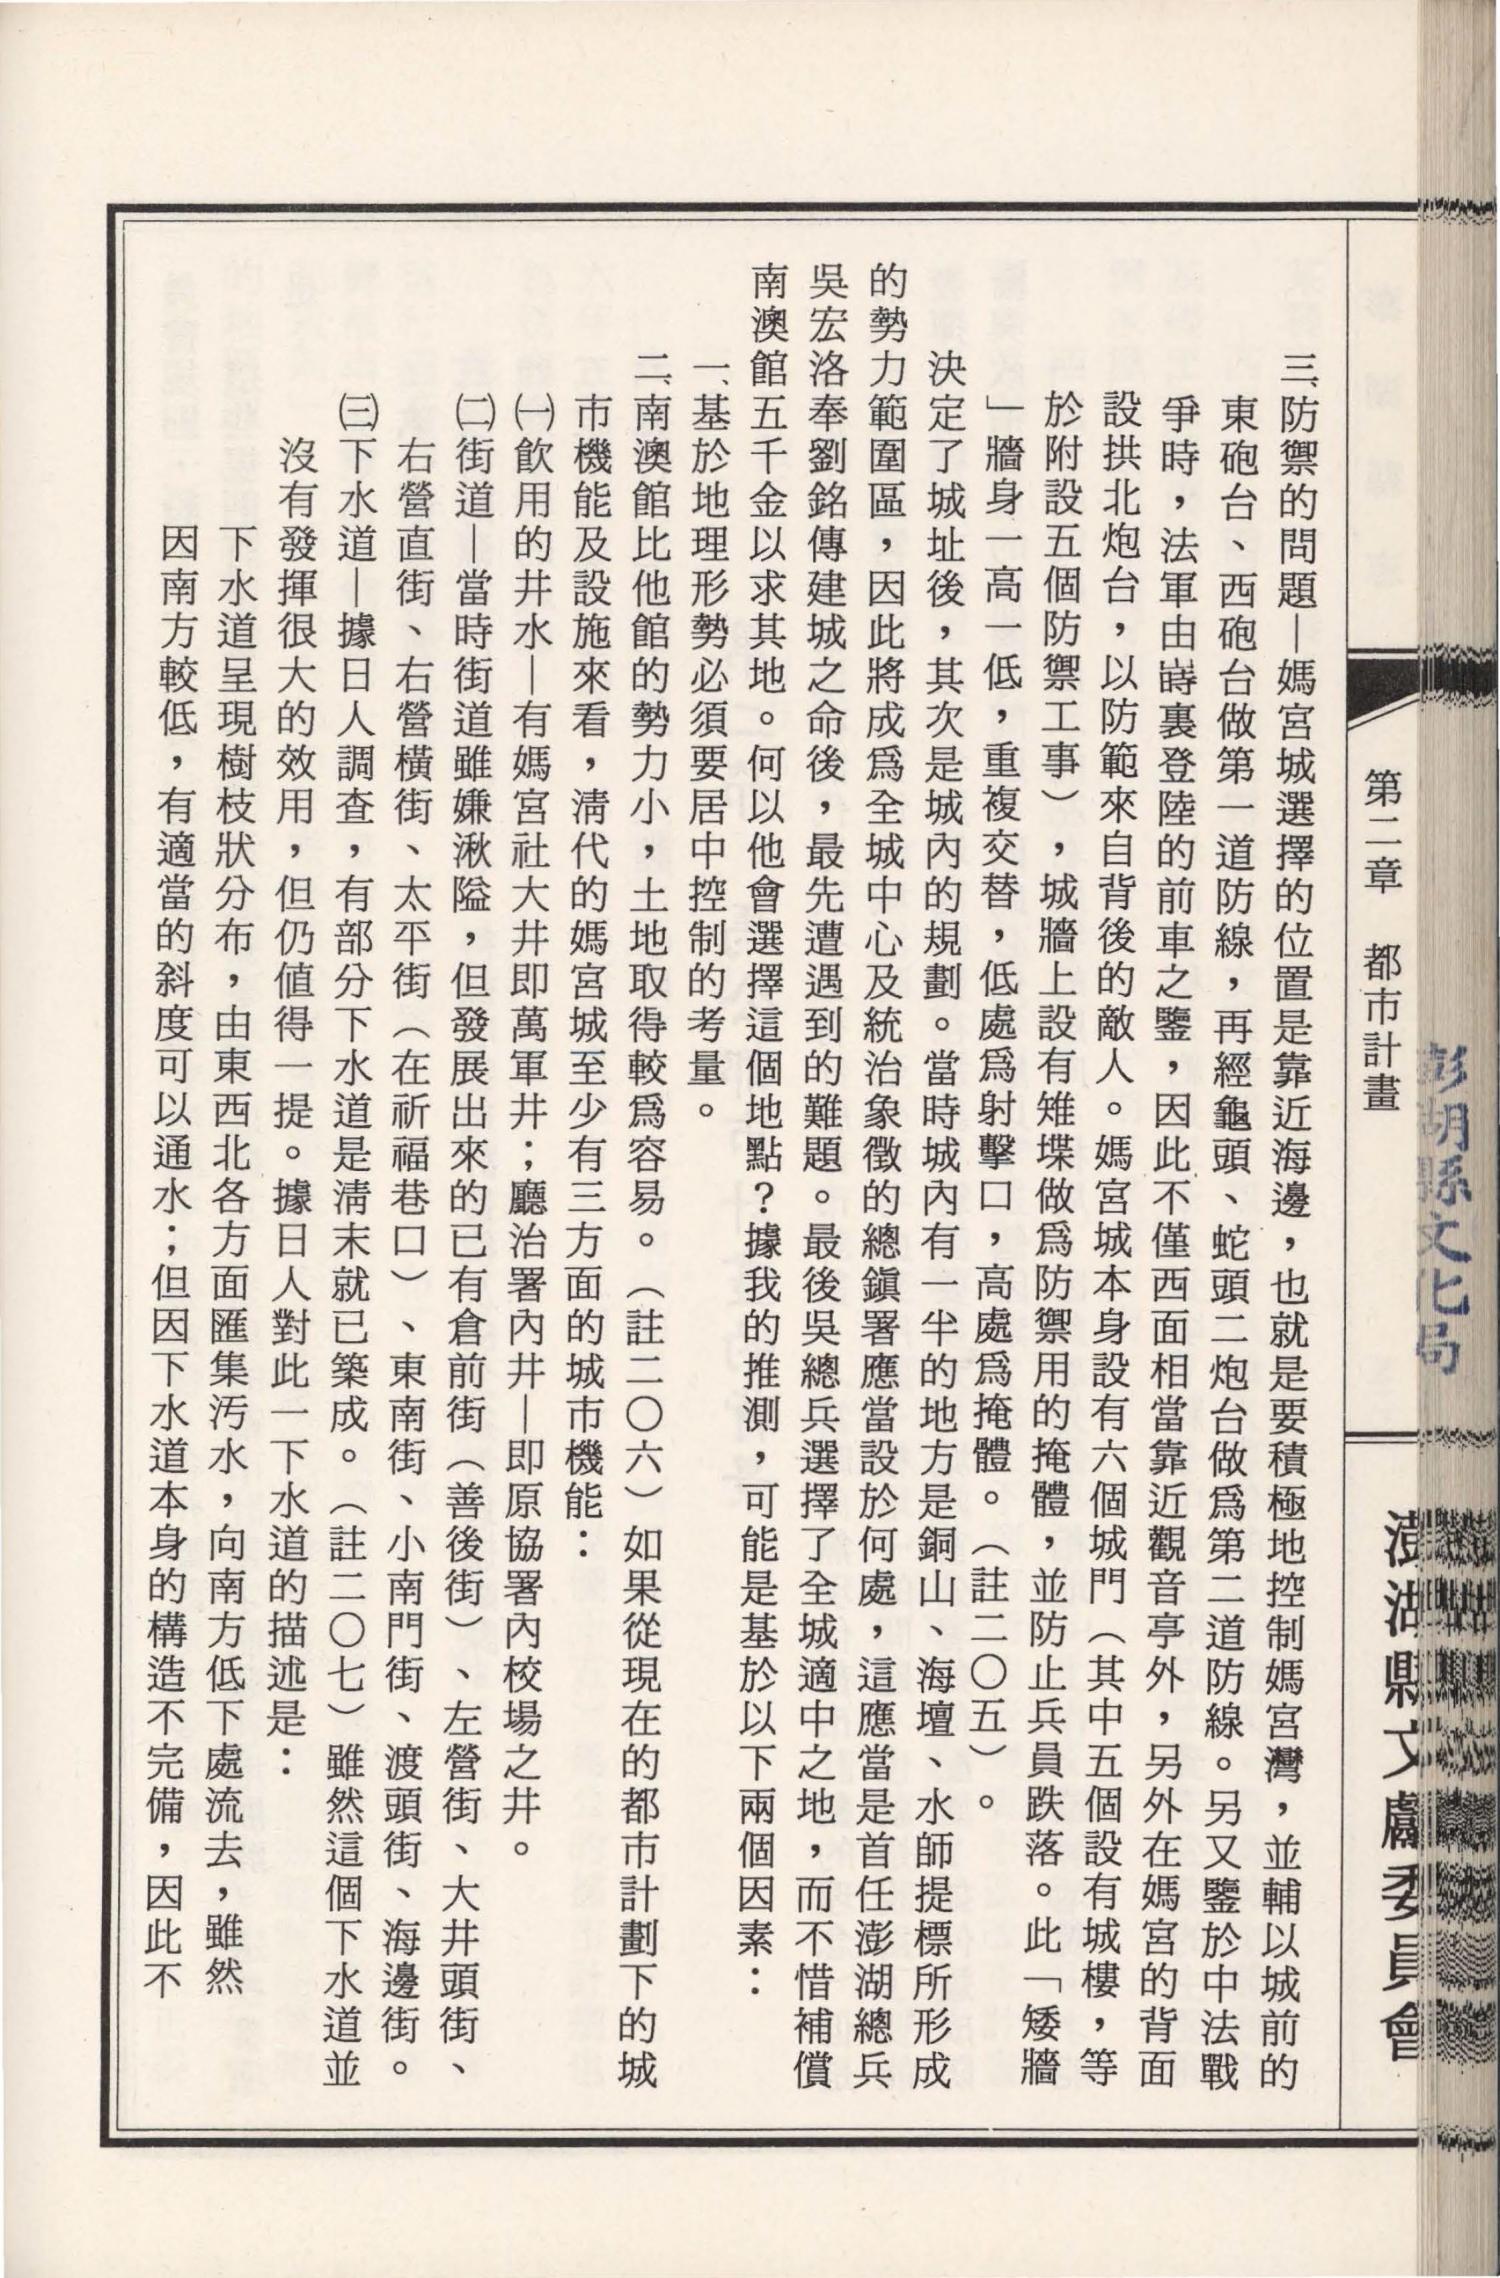 第二章　都市計畫
澎湖縣文獻委員會
澎湖縣文化局
三、防禦的問題—媽宮城選擇的位置是靠近海邊，也就是要積極地控制媽宮灣，並輔以城前的
東砲台、西砲台做第一道防線，再經龜頭、蛇頭二炮台做爲第二道防線。另又鑒於中法戰
爭時，法軍由蒔裏登陸的前車之鑒，因此不僅西面相當靠近觀音亭外，另外在媽宮的背面
設拱北炮台，以防範來自背後的敵人。媽宮城本身設有六個城門（其中五個設有城樓，等
於附設五個防禦工事），城牆上設有雉堞做爲防禦用的掩體，並防止兵員跌落。此「矮牆
」牆身一高一低，重複交替，低處爲射擊口，高處爲掩體。（註二〇五）。
決定了城址後，其次是城內的規劃。當時城內有一半的地方是銅山、海壇、水師提標所形成
的勢力範圍區，因此將成爲全城中心及統治象徵的總鎭署應當設於何處，這應當是首任澎湖總兵
吳宏洛奉劉銘傳建城之命後，最先遭遇到的難題。最後吳總兵選擇了全城適中之地，而不惜補償
南澳館五千金以求其地。何以他會選擇這個地點？據我的推測，可能是基於以下兩個因素：
一、基於地理形勢必須要居中控制的考量。
二、南澳館比他館的勢力小，土地取得較爲容易。（註二〇六）如果從現在的都市計劃下的城
市機能及設施來看，淸代的媽宮城至少有三方面的城市機能：
㈠飮用的井水—有媽宮社大井即萬軍井；廳治署內井—即原協署內校場之井。
㈡街道—當時街道雖嫌湫隘，但發展出來的已有倉前街（善後街）、左營街、大井頭街、
右營直街、右營橫街、太平街（在祈福巷口）、東南街、小南門街、渡頭街、海邊街。
㈢下水道—據日人調查，有部分下水道是淸末就已築成。（註二〇七）雖然這個下水道並
沒有發揮很大的效用，但仍値得一提。據日人對此一下水道的描述是：
下水道呈現樹枝狀分布，由東西北各方面匯集汚水，向南方低下處流去，雖然
因南方較低，有適當的斜度可以通水；但因下水道本身的構造不完備，因此不